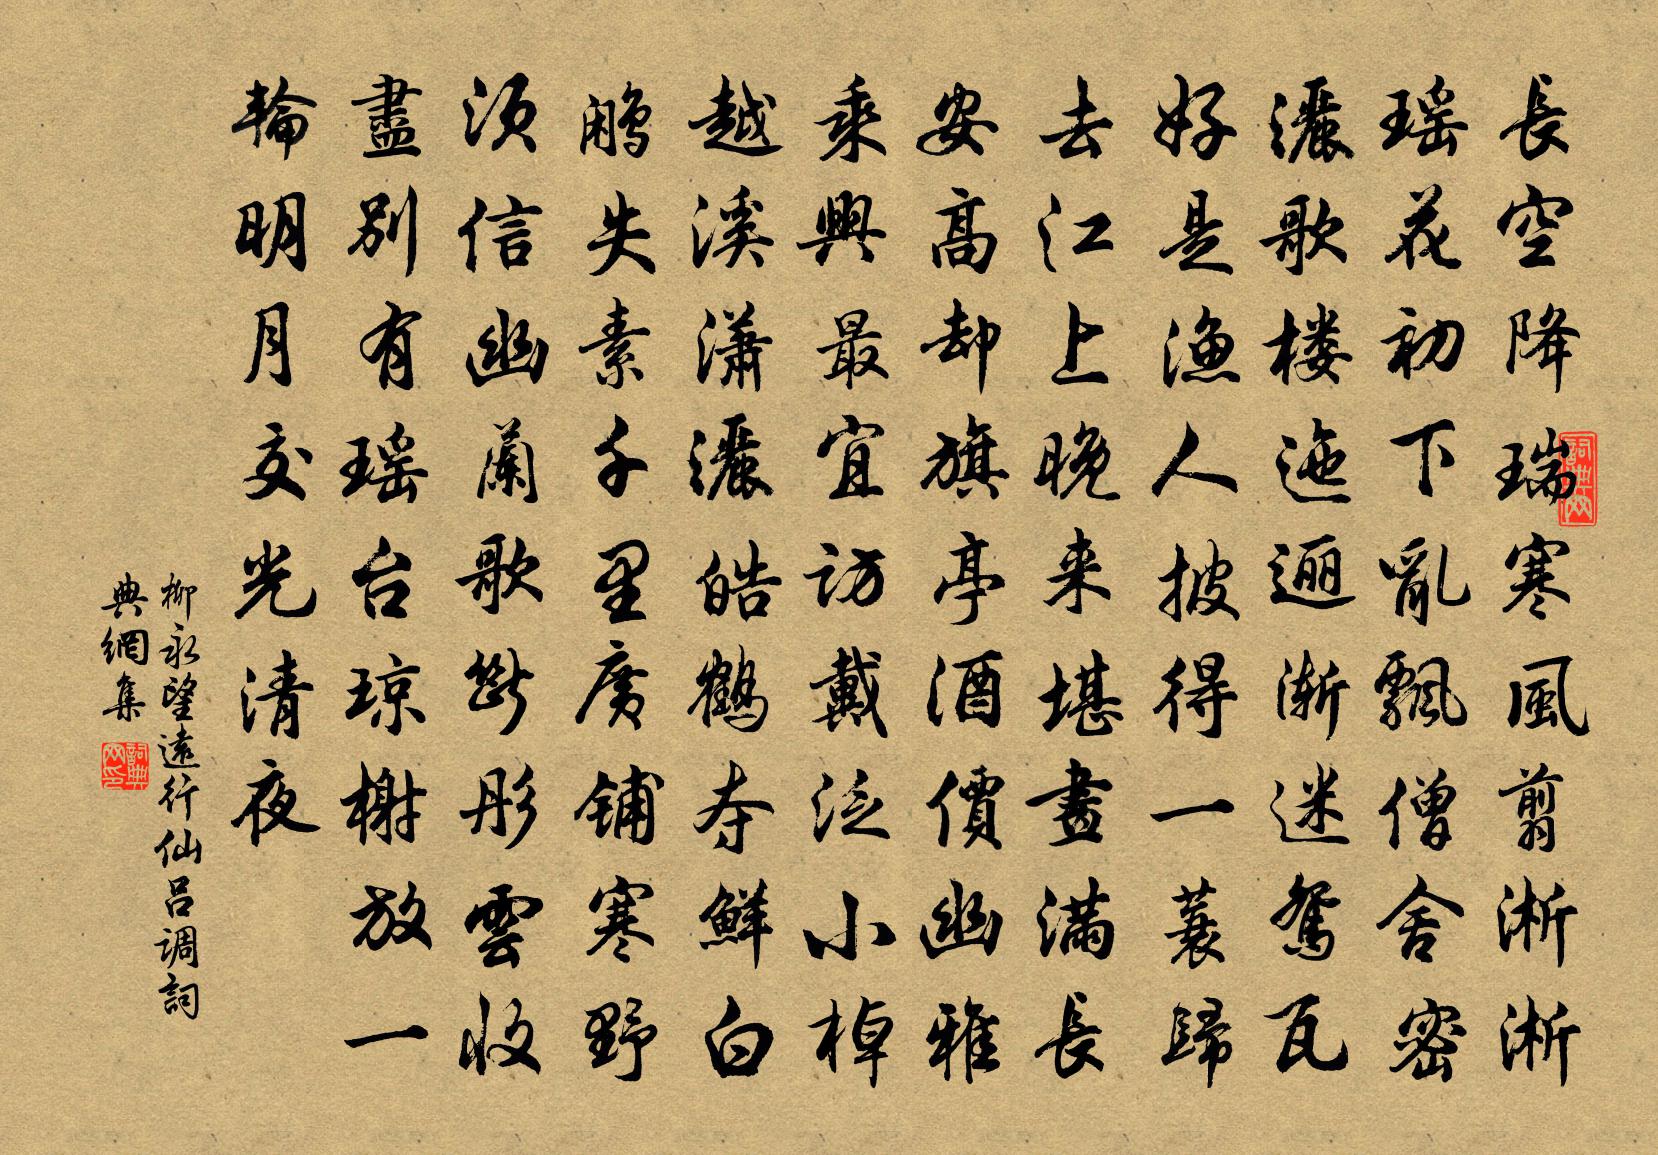 長空降瑞寒風剪淅淅
瑶花初下亂飄僧舍密
灑歌楼迤逦漸迷鴛瓦
好是漁人披得一蓑歸
去江上晚来堪畫滿長
安高却旗亭酒價幽雅
乘興最宜訪戴泛小棹
越溪瀟灑皓鶴夺鮮白
鹇失素千里廣铺寒野
须信幽蘭歌斷彤雲收
盡别有瑶台琼榭放一
輪明月交光清夜
柳永望遠行仙呂调詞
典網集
詞典网
詞典网印